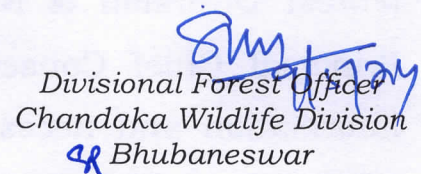 Divisional Forest Officer
Chandaka Wildlife Division
Bhubaneswar